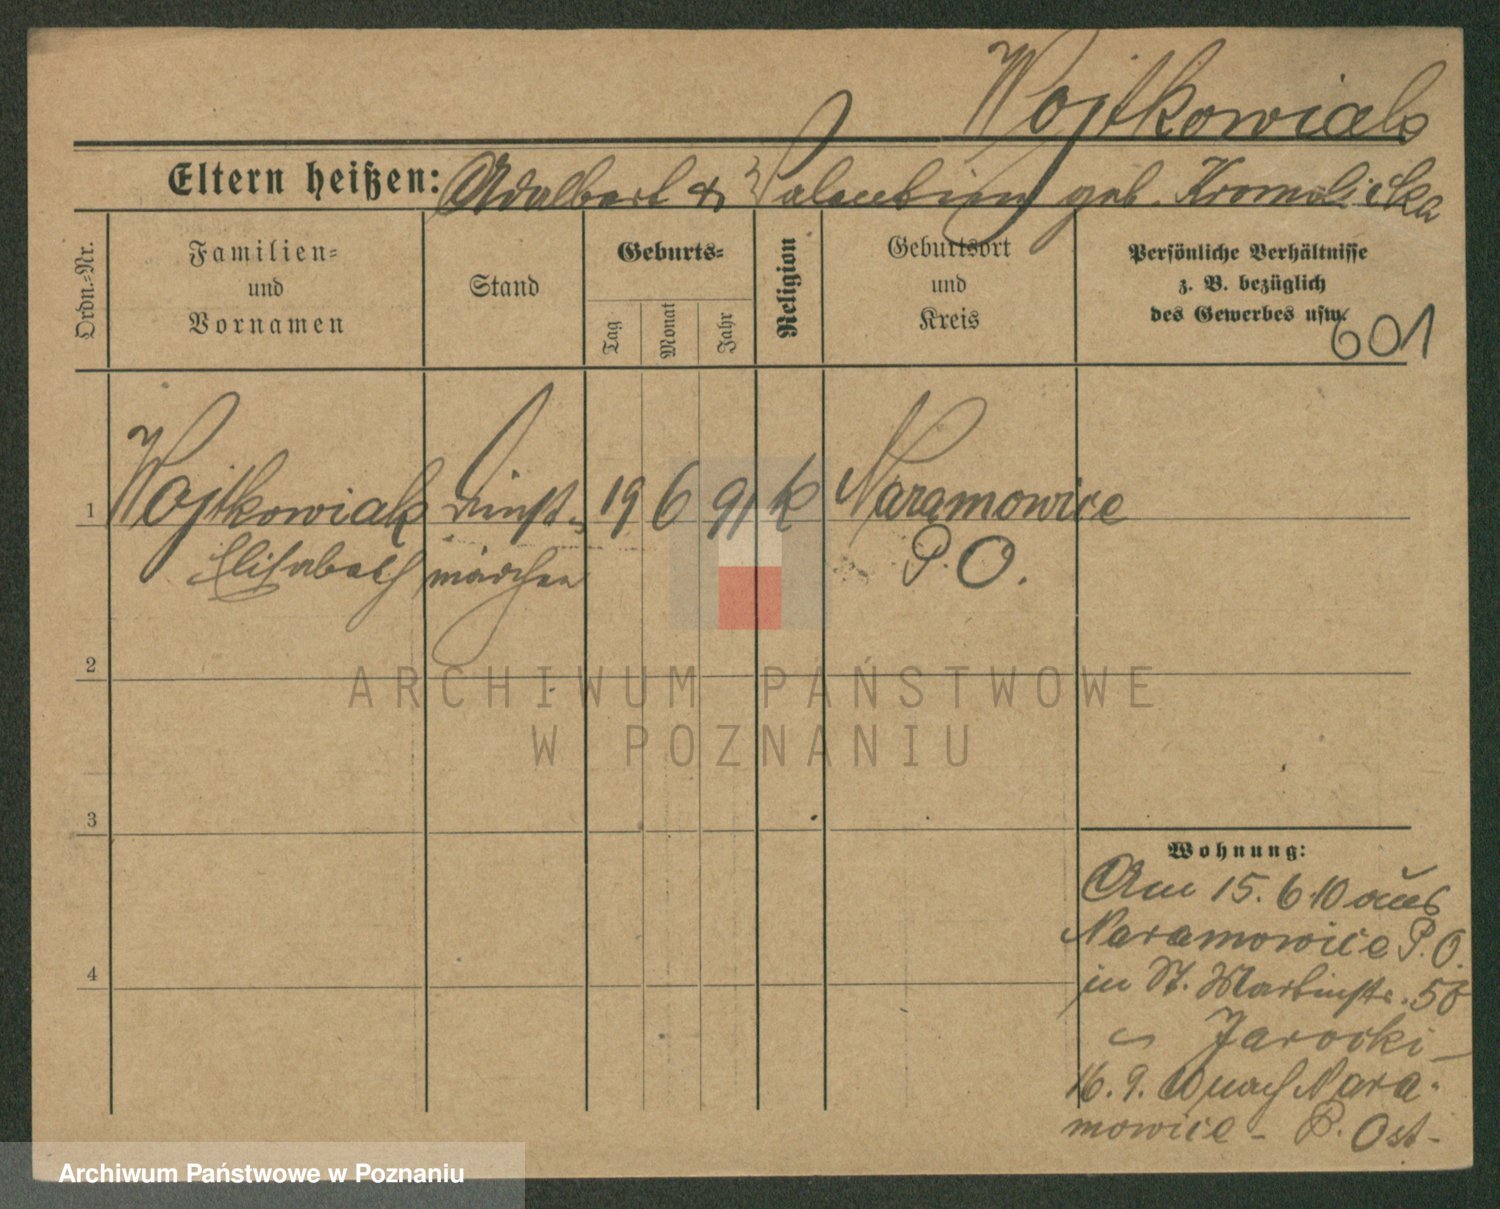 Wojtkowiak
Eltern heißen: Adalbert & Valentine geb. Kromolicka
Ordn.-Nr.
Familien-
und
Vornamen
Stand
Geburts-
Tag
Monat
Jahr
Religion
Geburtsort
und
Kreis
Persönliche Verhältnisse
z. B. bezüglich
des Gewerbes usw.
601
1 Wojtkowiak Dienst- 19 6 91 k Naramowice
Elisabeth mädchen P. O.
2
ARCHIWUM PAŃSTWOWE
W POZNANIU
3
4
Wohnung:
Am 15. 6 10 aus
Naramowice P. O.
in St. Martinstr. 58
Jarocki
16. 9. 10 nach Nara-
mowice - P. Ost-
Archiwum Państwowe w Poznaniu